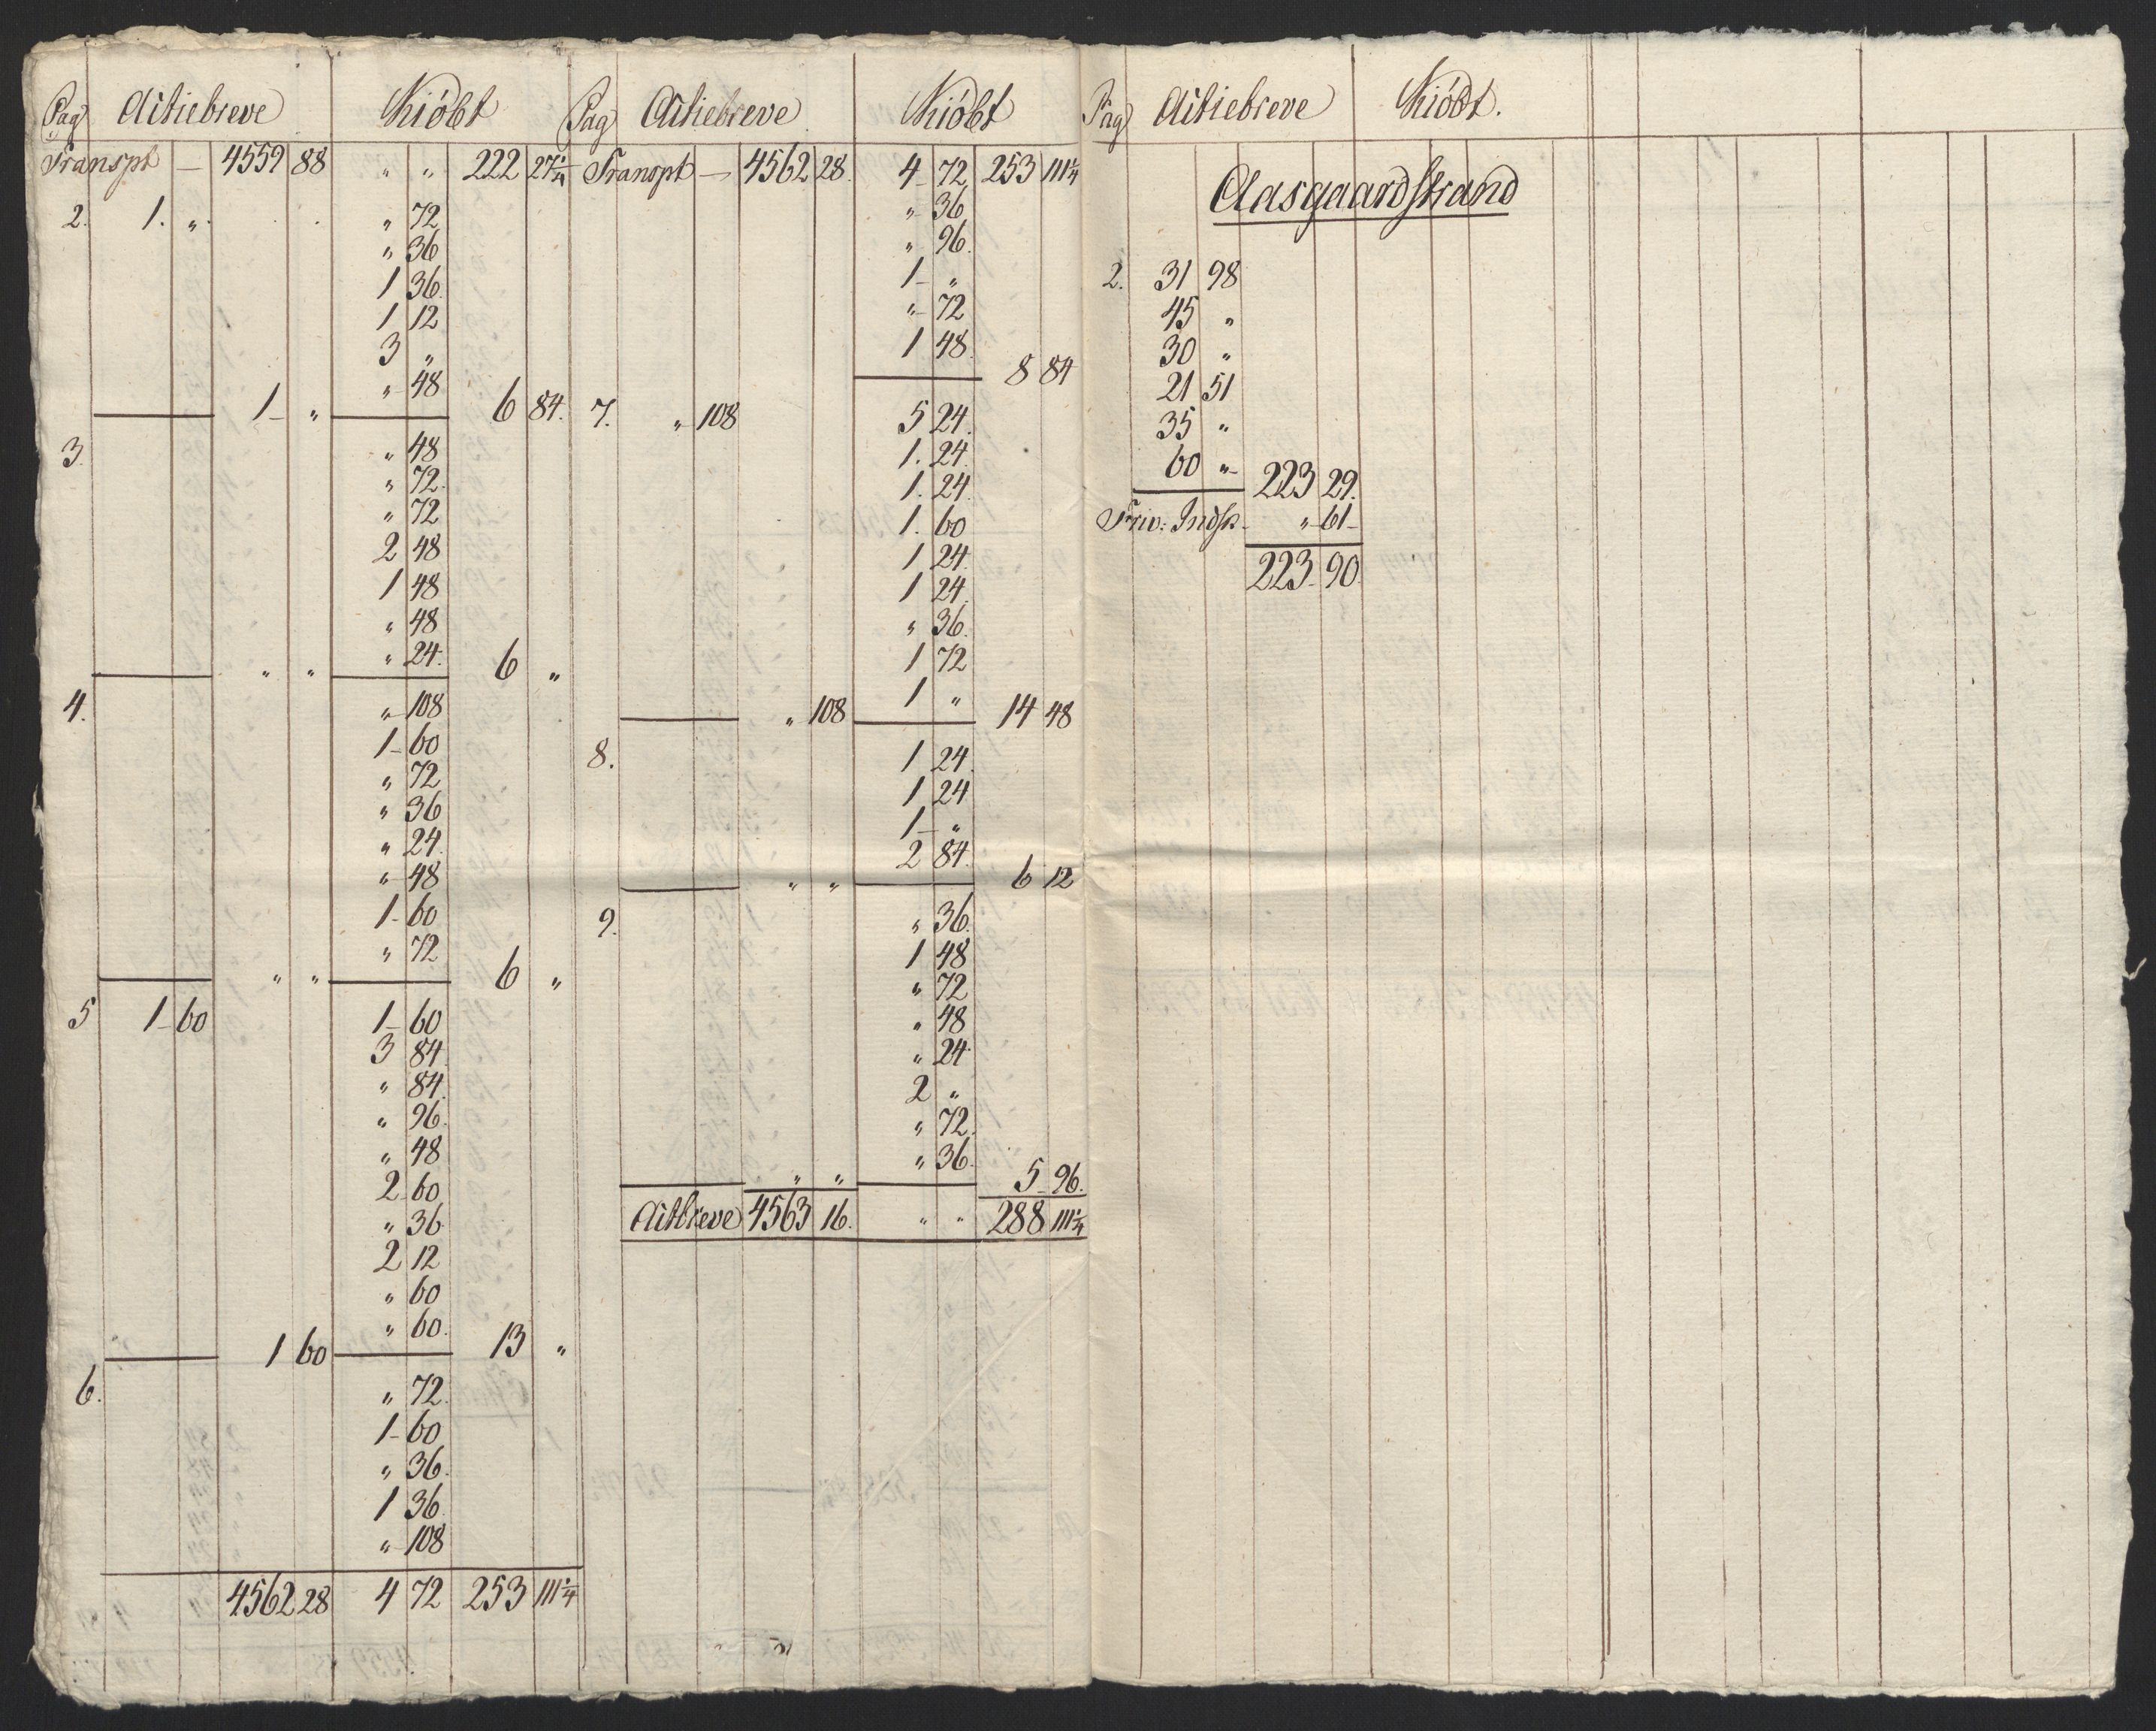 Pag Actiebreve Kiöbt
Transpt — 4559 88 " " 222 27 1/4
2. 1. " " 72
" 36
1 36
1 12
3 "
" 48
1 " 6 84.
3. " 48
" 72
" 72
2 48
1 48
" 48
" 24
" " 6 "
4. " 108
1 60
" 72
" 36
" 24
" 48
1 60
" 72
" " 6 "
5 1 60 1 60
3 84
" 84
" 96
" 48
2 60
" 36
2 12
" 60
" 60
1 60 13 "
6. " 72
1 60
" 36
1 36
" 108
4562 28 4 72 253 111 1/4
Pag Actiebreve Kiöbt
Transpt — 4562 28 4 72 253 111 1/4
" 36
" 96
1 "
" 72
1 48
8 84
7. " 108 5 24
1. 24
1. 24
1. 60
1 24
1 24
" 36
1 72
1 "
" 108 14 48
8. 1 24
1 24
1 "
2 84
" " 6 12
9. " 36
1 48
" 72
" 48
" 24
2 "
" 72
" 36
" " 5 96
Actbreve 4563 16. " " 288 111 1/4
Pag Actiebreve Kiöbt.
Aasgaardstrand
2. 31 98
45 "
30 "
21 51
35 "
60 " 223 29.
Friv: Indsk. " 61
223 90